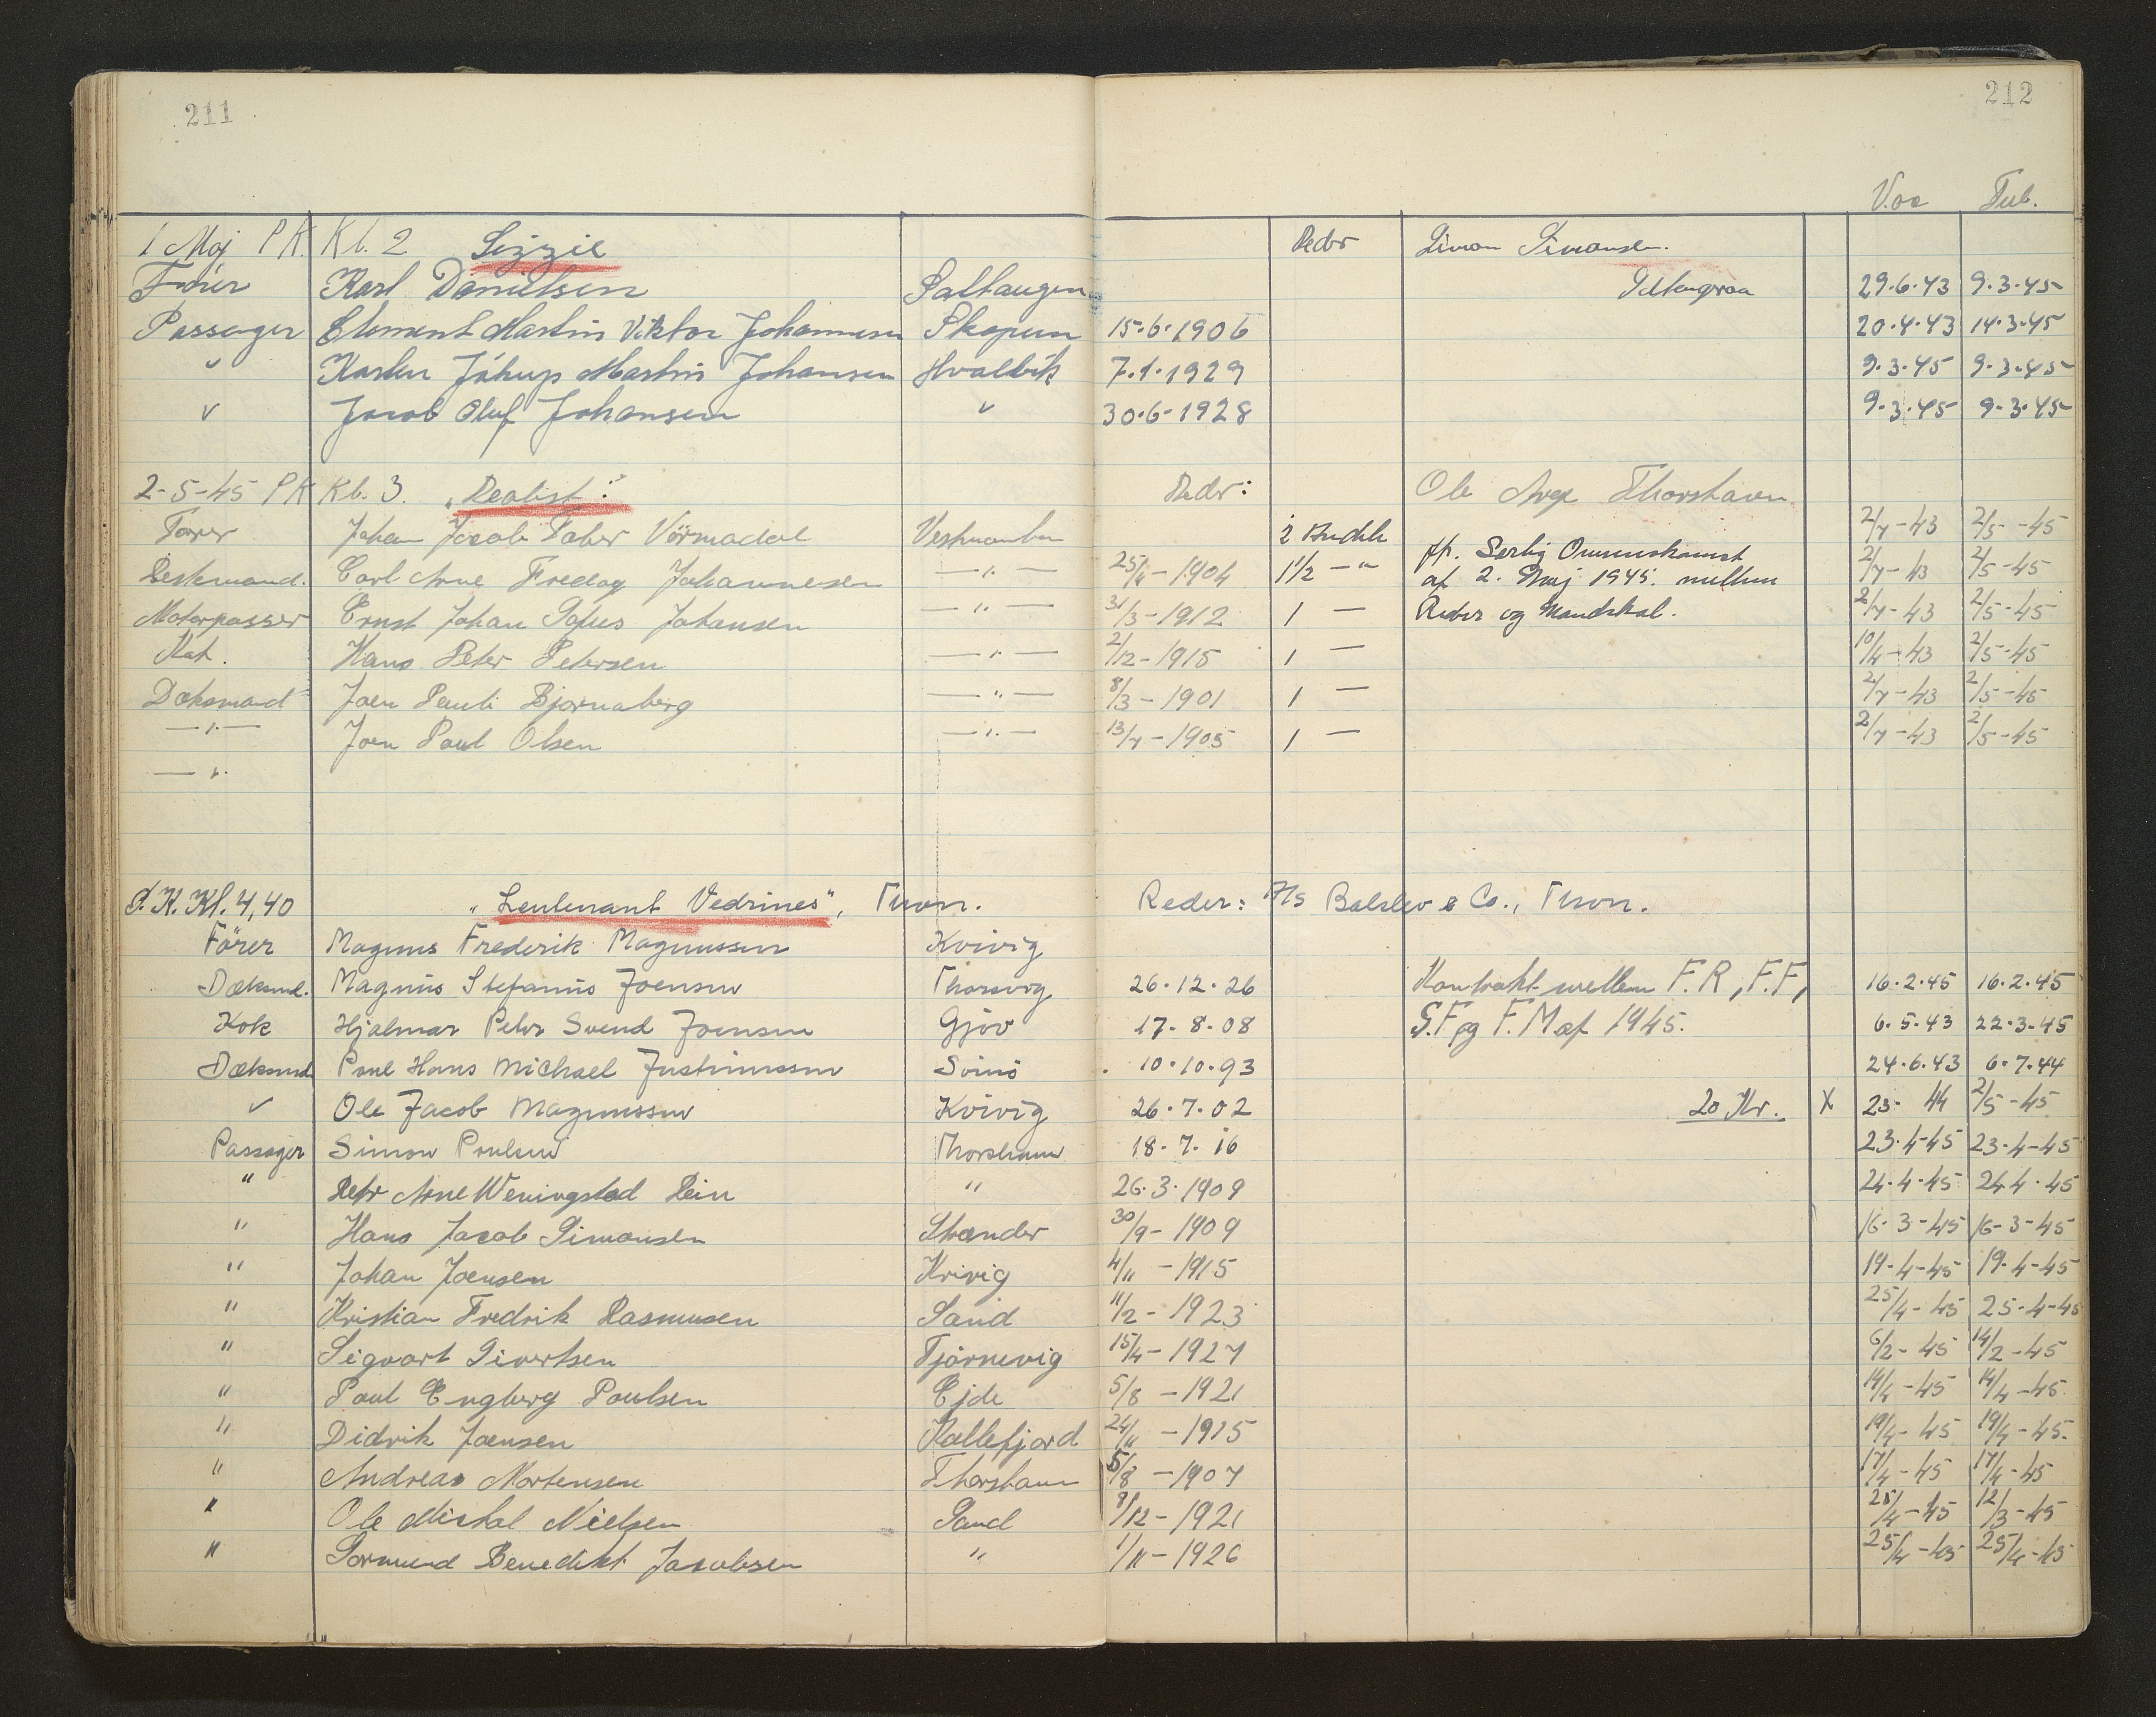 211
212
Vac Tub.
1 Maj P.K. Kl. 2 Lizzie Reder Simon Simonsen.
Fører Karl Danielsen Saltangen 29.6.43 9.3.45
Passager Clement Martin Viktor Johannesen Skopun 15.6.1906 20.4.43 14.3.45
" Karlen Jákup Martin Johansen Hvalbik 7.1.1929 9.3.45 9.3.45
" Jacob Oluf Johansen " 30.6-1928 9.3.45 9.3.45
2-5-45 PK Kl. 3. "Realist": Reder: Ole Thorshavn
Fører Johan Jacob Faber Vörmadal Vestmanhn 2 2/7-43 2/5-45
Bestemand. Carl Arne Fredog Johannesen —"— 25/4-1904 1½ —" 2/7-43 2/5-45
ift. Serlig Overenskomst
af 2. Maj 1945. mellem
Reder og Mandskal.
Motorpasser Ernst Johan Johansen —"— 31/3-1912 1 — 2/7-43 2/5-45
Kok. Hans Peter Petersen —"— 2/12-1915 1 — 10/4-43 2/5-45
Dæksmand Joen Pauli Bjornaberg —"— 8/3-1901 1 — 2/7-43 2/5-45
—"— Joen Poul Olsen —"— 13/7-1905 1 — 2/7-43 2/5-45
—"
P.K. Kl. 4,40 "Leutenant Vedrines", Thvn. Reder: A/s Balslev & Co., Thvn.
Förer Magnus Frederik Magnussen Kvivig
Dæksmd. Magnus Stefanus Joensen Thorsvig 26.12.26 Kontrakt mellem F.R, F.F, 16.2.45 16.2.45
Kok Hjalmar Peter Svend Joensen Gjov 17.8.08 S.F og F.M af 1945. 6.5.43 22.3.45
Dæksmd Poul Hans Michael Justinussen Svinö 10.10.93 24.6.43 6.7.44
" Ole Jacob Magnussen Kvivig 26.7.02 20 Kr. X 23- 44 2/5-45
Passager Simon Poulsen Thorshavn 18.7.16 23.4-45 23-4-45
" Petr Arne Weningstad Rein " 26.3.1909 24.4.45 24.4.45
" Hans Jacob Simonsen Strænder 30/9-1909 16-3-45 16-3-45
" Johan Joensen Kvivig 4/11-1915 19-4-45 19-4-45
" Kristian Fredrik Rasmusen Sand 11/2-1923 25/4-45 25-4-45
" Sigvart Sivertsen Tjörnevig 15/4-1927 6/2-45 14/2-45
" Poul Engberg Poulsen Ejde 5/8-1921 14/4-45 14/4-45
" Didrik Joensen Kollefjord 24/11-1915 19/4-45 19/4-45.
" Andreas Mortensen Thorshavn 5/8-1907 17/4-45 17/4-45
" Ole Mickal Nielsen Sand 9/12-1921 25/4-45 12/3-45
" Sormund Benedikt Jacobsen " 1/11-1926 25/4-45 25/4-45